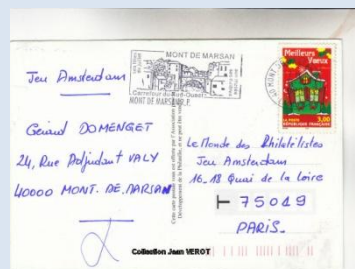 MONT DE MARSAN
Carrefour du Sud-Ouest
MONT DE MARSAN R.P.
Meilleurs Vœux
3,00
LA POSTE
RÉPUBLIQUE FRANÇAISE
Jeu Amsterdam
Gérard DOMENGET
24, Rue Adjudant VALY
40000 MONT. DE. MARSAN
Le Monde des Philatélistes
Jeu Amsterdam
16_18 Quai de la Loire
75019
PARIS_
Collection Jean VEROT